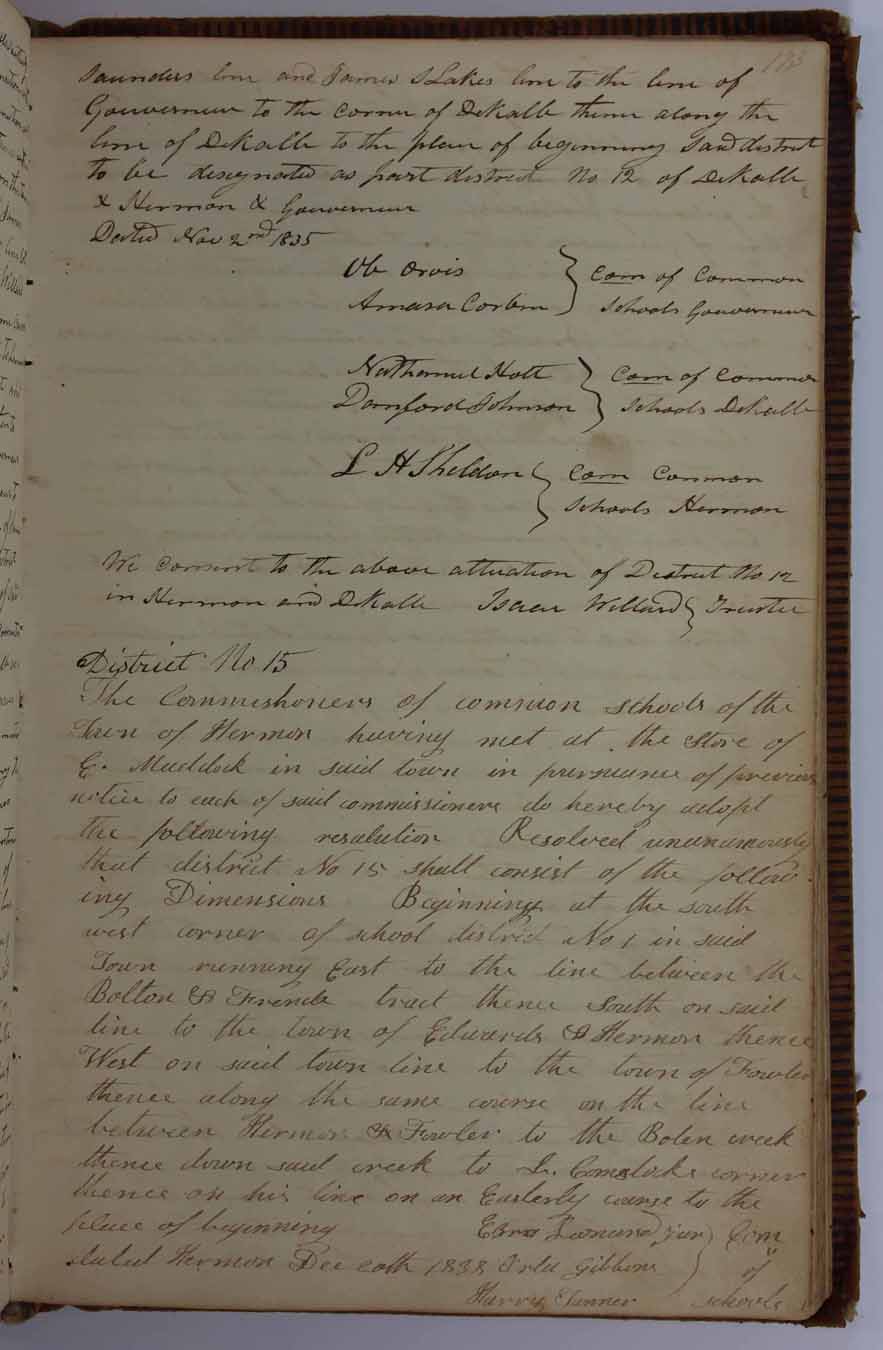 Saunders line and James S Lakes line to the line of
Gouverneur to the corner of DeKalb thence along the
line of DeKalb to the place of beginning Said district
to be designated as part district No 12 of DeKalb
& Hermon & Gouverneur
Dated Nov 2nd 1835
Ob Orvis
Amasa Corbin
Com of Common
Schools Gouverneur
Nathaniel Holt
Danford Johnson
Com of Common
Schools DeKalb
L H Sheldon
Com Common
Schools Hermon
We consent to the above of District No 12
in Hermon and DKalb Isaac Willard Trustee
District No 15
The Commishoners of common schools of the
Town of Hermon having met at the Store of
E. Maddock in said town in persuance of previous
notice to each of said commissioners do hereby adopt
the following resolution Resolved unanimously
that district No 15 shall consist of the follow-
ing Dimensions Beginning at the south
west corner of school district No 1 in said
Town running East to the line between the
Bolton & tract thence South on said
line to the town of Edwards & Hermon thence
West on said town line to the town of Fowler
thence along the same course on the line
between Hermon & Fowler to the creek
thence down said creek to Comstocks corner
thence on his line on an Easterly course to the
place of beginning
dated Hermon Dec 1838
Ezra Leonard jun
Orla Gibbons
Harry Tanner
Com
of
schools